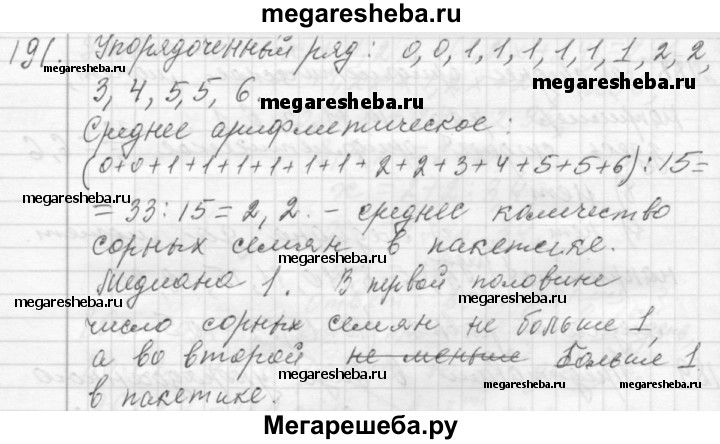 megaresheba.ru
191. Упорядоченный ряд: 0,0,1,1,1,1,1,1,2,2,
megaresheba.ru
megaresheba.ru
3, 4, 5,5, 6.
megaresheba.ru
Среднее арифметическое:
(0+0+1+1+1+1+1+1+2+2+3+4+5+5+6):15=
megaresheba.ru
megaresheba.ru
=33:15=2,2. - среднее количество
сорных семян в пакетике.
Медиана 1. В первой половине
megaresheba.ru
megaresheba.ru
число сорных семян не больше 1,
а во второй не меньше больше 1
megaresheba.ru
megaresheba.ru
в пакетике.
Мегарешеба.ру